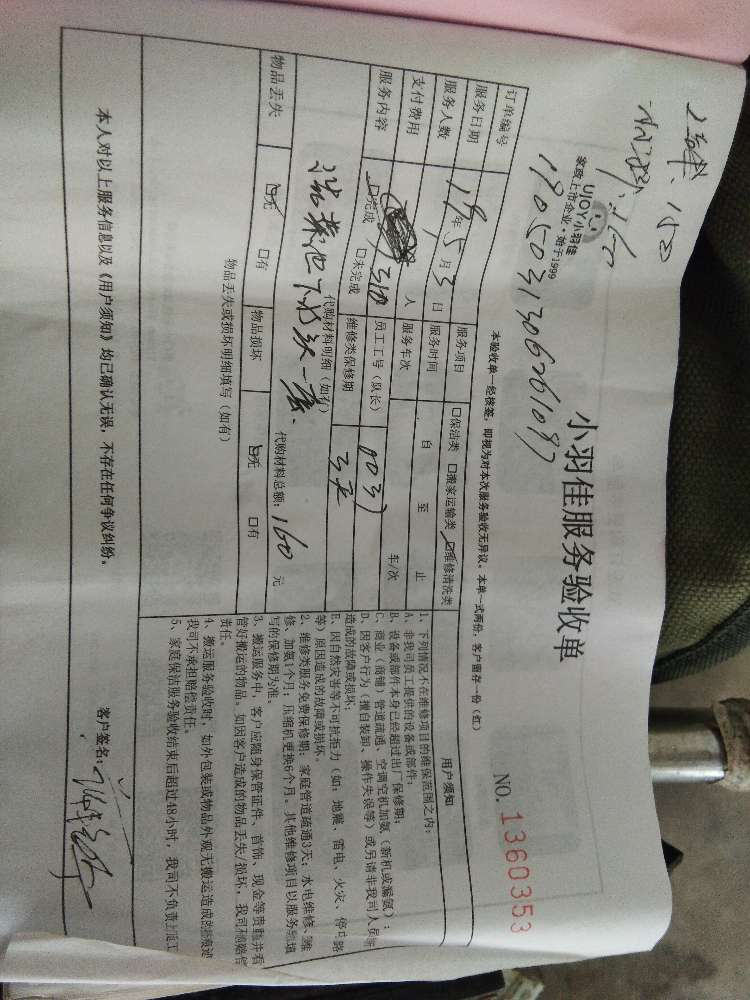 小羽佳服务验收单
UJOY小羽佳
家政上市企业·始于1999
NO. 1360353
本验收单一经核签,即视为对本次服务验收无异议。本单一式两份,客户留存一份(红)
订单编号
服务项目 口保洁类 口搬家运输类 ☑维修清洗类
服务日期 19年5月3日 服务时间 自 至 止
服务人数 人 服务车次 车/次
支付费用 310 员工工号(队长)
服务内容 ☑完成 口未完成 维修类保修期 3天
代购材料明细(如有)
代购材料总额:160元
物品丢失 ☑无 口有 物品损坏 ☑无 口有
物品丢失或损坏明细填写(如有)
用户须知
1、下列情况不在维修项目的维保范围之内:
A、非我司员工提供的设备或部件;
B、设备或部件本身已经超过出厂保修期;
C、商业(商铺)管道疏通、空调空机加氨(新机或漏氨);
D、因客户行为(擅自装卸、操作失误等)或另请非我司人员
造成的故障或损坏;
E、因自然灾害等不可抗拒力(如:地震、雷电、火灾、停电
等)原因造成的故障或损坏。
2、维修类服务免费保修期:家庭管道疏通3天;水电维修、
修、加氨1个月;压缩机更换6个月。其他维修项目以服务
写的保修期为准。
3、搬运服务中,客户应随身保管证件、首饰、现金等贵重并看
管好搬运的物品。如因客户造成的物品丢失/损坏,我司不赔偿
责任。
4、搬运服务验收时,如外包装或物品外观无搬运造成的
我司不承担赔偿责任。
5、家庭保洁服务验收结束后超过48小时,我司不负责
本人对以上服务信息以及《用户须知》均已确认无误,不存在任何争议纠纷。
客户签名: